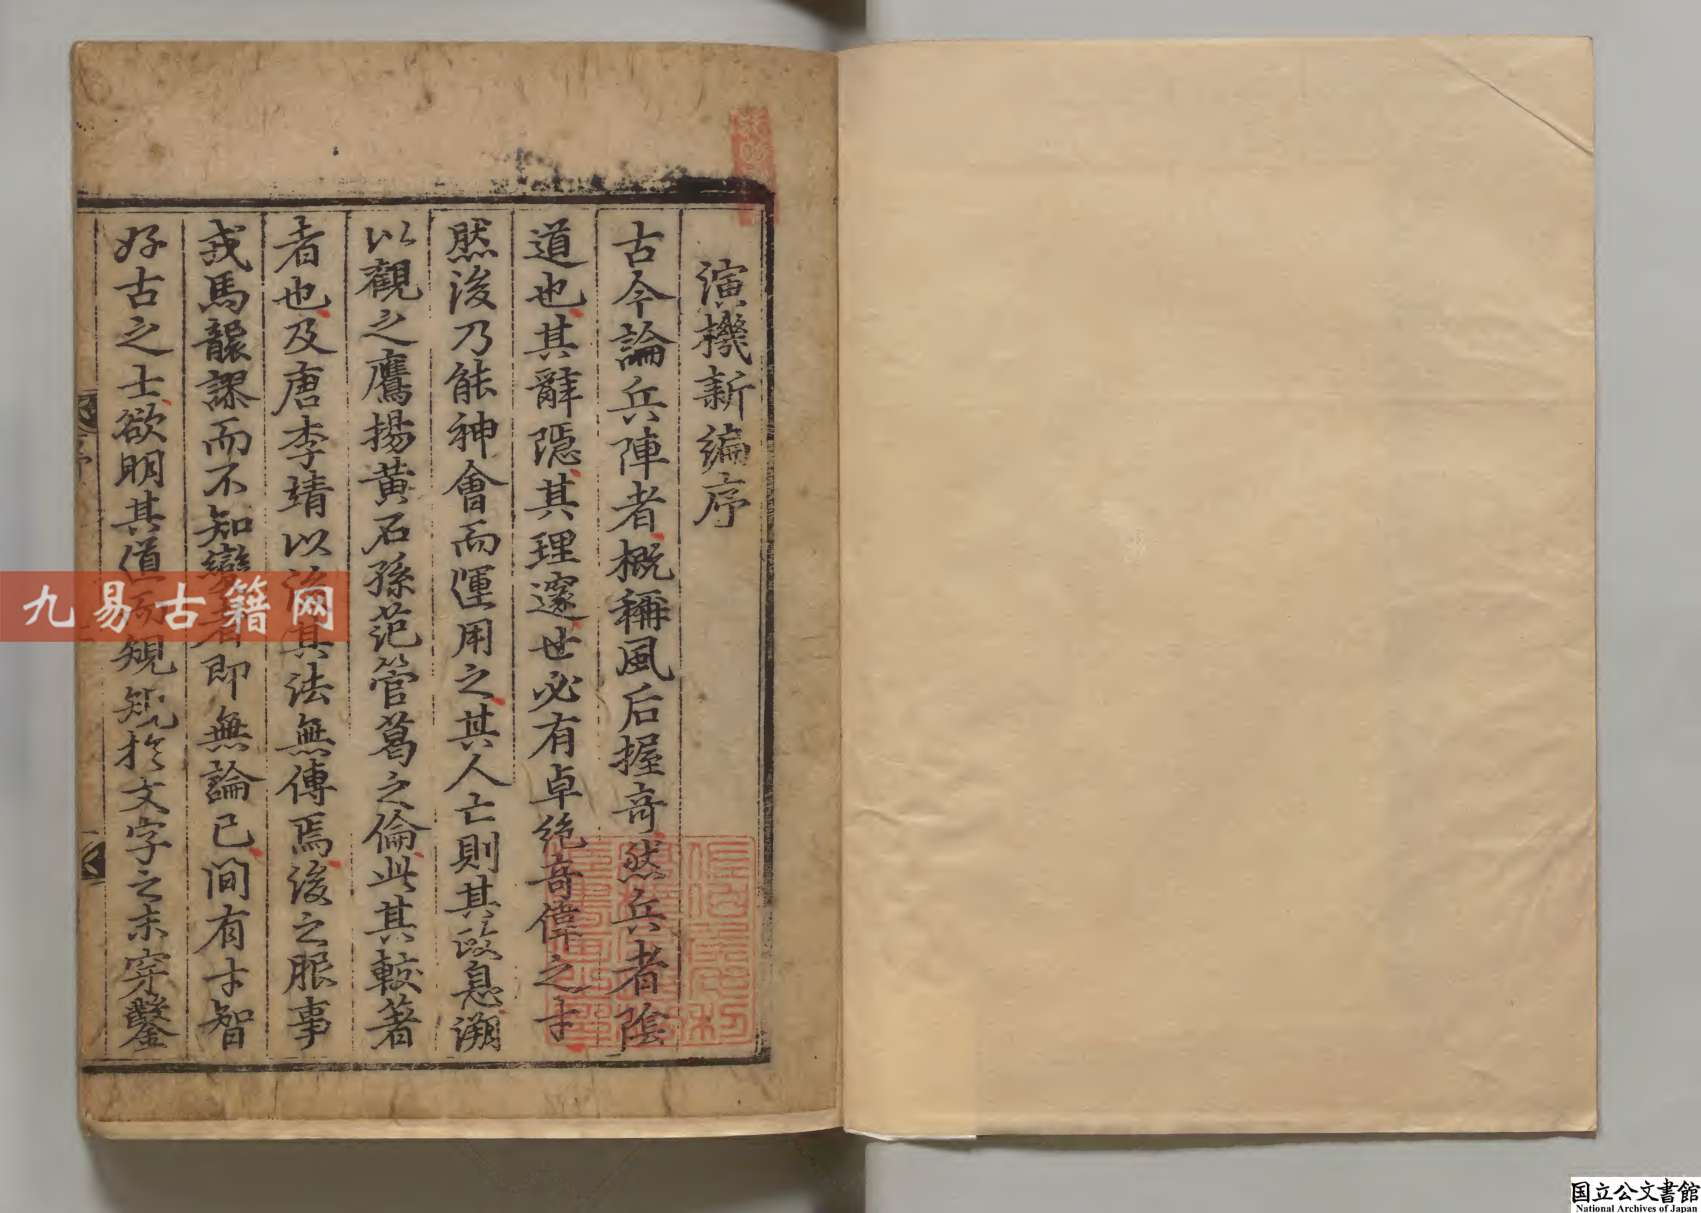 演機新編序
古今論兵陣者概稱風后握奇然兵者陰
道也其辭隱其理邃世必有卓絶奇偉之才
然後乃能神會而運用之其人亡則其政息溯
以觀之鷹揚黃石孫范管葛之倫此其較著
者也及唐李靖以後其法無傳焉後之服事
戎馬龎謬而不知變者即無論已間有才智
好古之士欲明其道而規規於文字之末穿鑿
九易古籍网
国立公文書館
National Archives of Japan